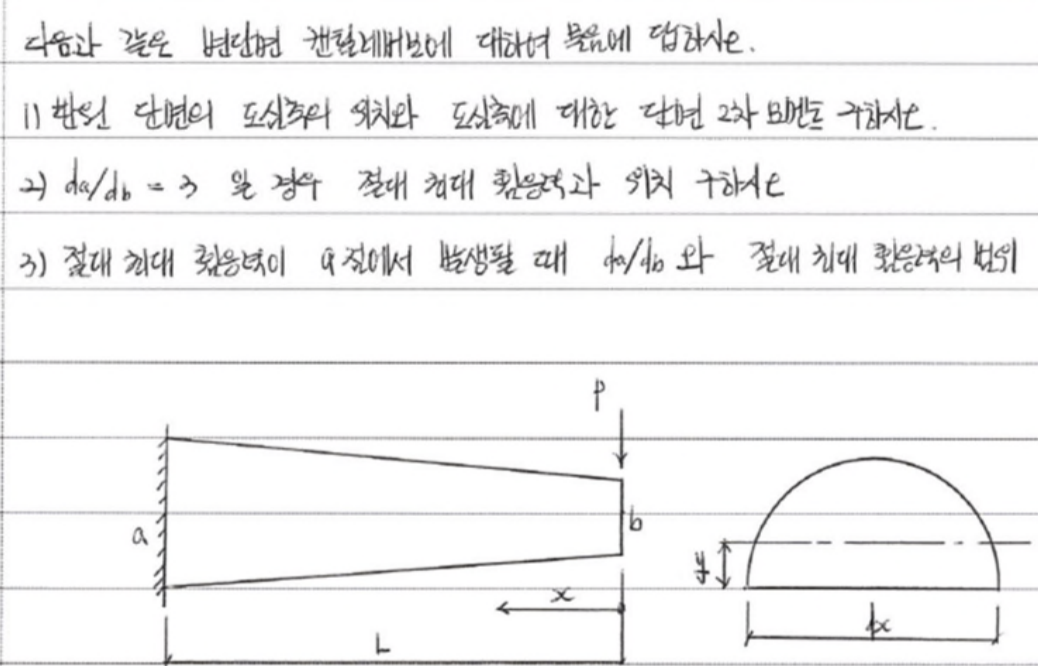 다음과 같은 변단면 캔틸레버보에 대하여 물음에 답하시오.
1) 반원 단면의 도심축의 위치와 도심축에 대한 단면 2차 모멘트 구하시오.
2) da/db = 3 일 경우 절대 최대 휨응력과 위치 구하시오
3) 절대 최대 휨응력이 a점에서 발생될 때 da/db 와 절대 최대 휨응력의 범위
P
a
b
y
x
dx
L